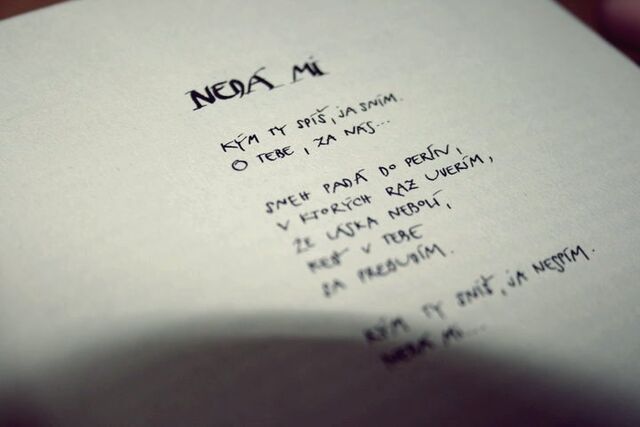 NEDÁ MI
KÝM TY SPÍŠ, JA SNÍM.
O TEBE, ZA NÁS...
SNEH PADÁ DO PERÍN,
V KTORÝCH RAZ UVERÍM,
ŽE LÁSKA NEBOLÍ,
KEĎ V TEBE
SA PREBUDÍM.
KÝM TY SNÍŠ, JA NESPÍM.
NEDÁ MI...